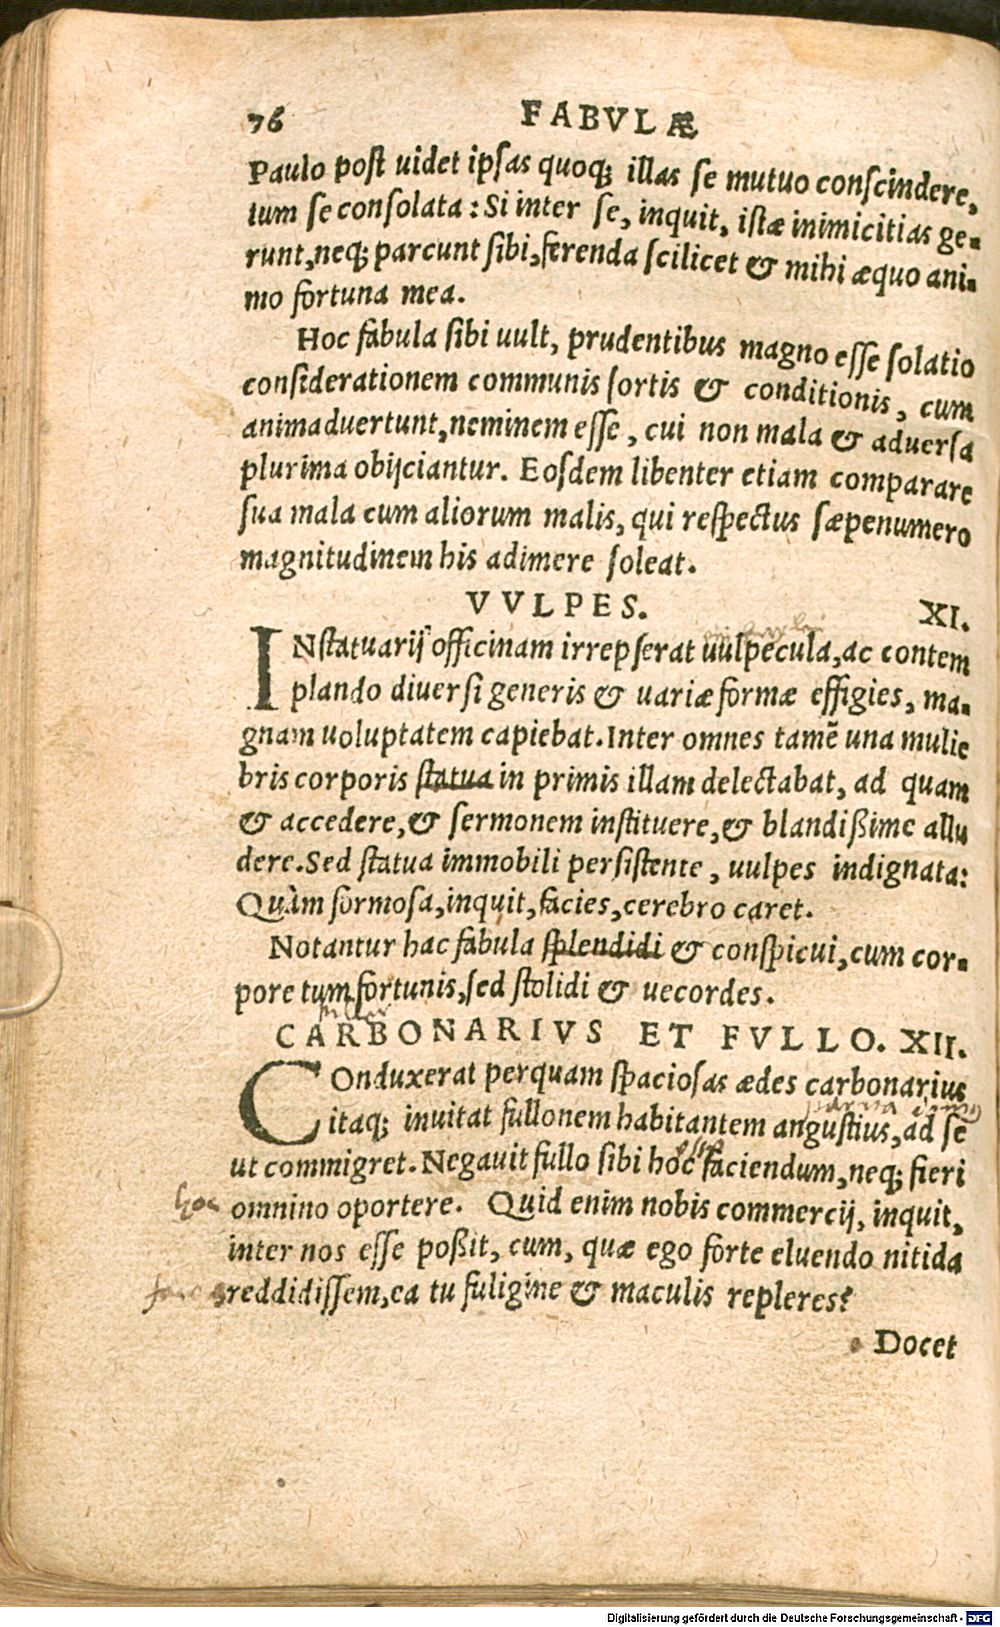 76 FABVLÆ
Paulo post uidet ipsas quoq; illas se mutuo conscindere,
tum se consolata: Si inter se, inquit, istæ inimicitias ge-
runt, neq; parcunt sibi, ferenda scilicet & mihi æquo ani-
mo fortuna mea.
Hoc fabula sibi uult, prudentibus magno esse solatio
considerationem communis sortis & conditionis, cum
animaduertunt, neminem esse, cui non mala & aduersa
plurima obijciantur. Eosdem libenter etiam comparare
sua mala cum aliorum malis, qui respectus sæpenumero
magnitudinem his adimere soleat.
VVLPES. XI.
INstatuarij officinam irrepserat uulpecula, ac contem
plando diuersi generis & uariæ formæ effigies, ma-
gnam uoluptatem capiebat. Inter omnes tamē una mulie
bris corporis statua in primis illam delectabat, ad quam
& accedere, & sermonem instituere, & blandißime allu
dere. Sed statua immobili persistente, uulpes indignata:
Quàm formosa, inquit, facies, cerebro caret.
Notantur hac fabula splendidi & conspicui, cum cor-
pore tum fortunis, sed stolidi & uecordes.
CARBONARIVS ET FVLLO. XII.
COnduxerat perquam spaciosas ædes carbonarius
itaq; inuitat fullonem habitantem angustius, ad se
ut commigret. Negauit fullo sibi hoc faciendum, neq; fieri
hoc omnino oportere. Quid enim nobis commercij, inquit,
inter nos esse poßit, cum, quæ ego forte eluendo nitida
reddidissem, ea tu fuligine & maculis repleres?
Docet
Digitalisierung gefördert durch die Deutsche Forschungsgemeinschaft - DFG